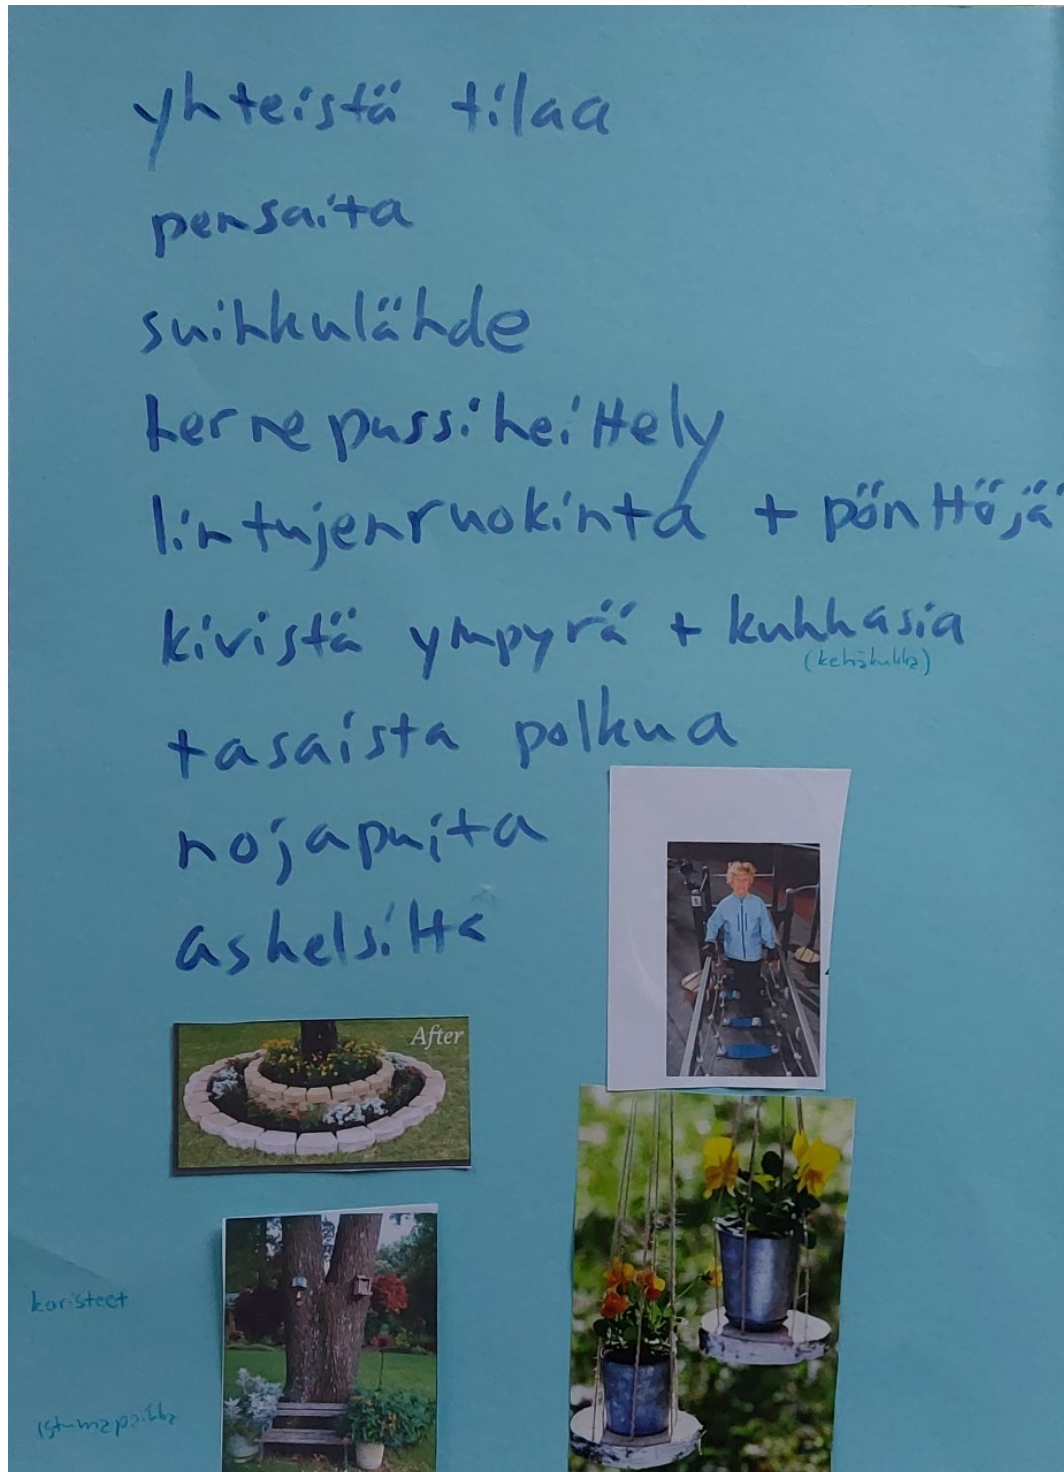 yhteistä tilaa
pensaita
suihkulähde
hernepussiheittely
lintujenruokinta + pönttöjä
kivistä ympyrä + kukkasia
(kehäkukka)
tasaista polkua
nojapuita
askelsilta
After
koristeet
istumapaikka